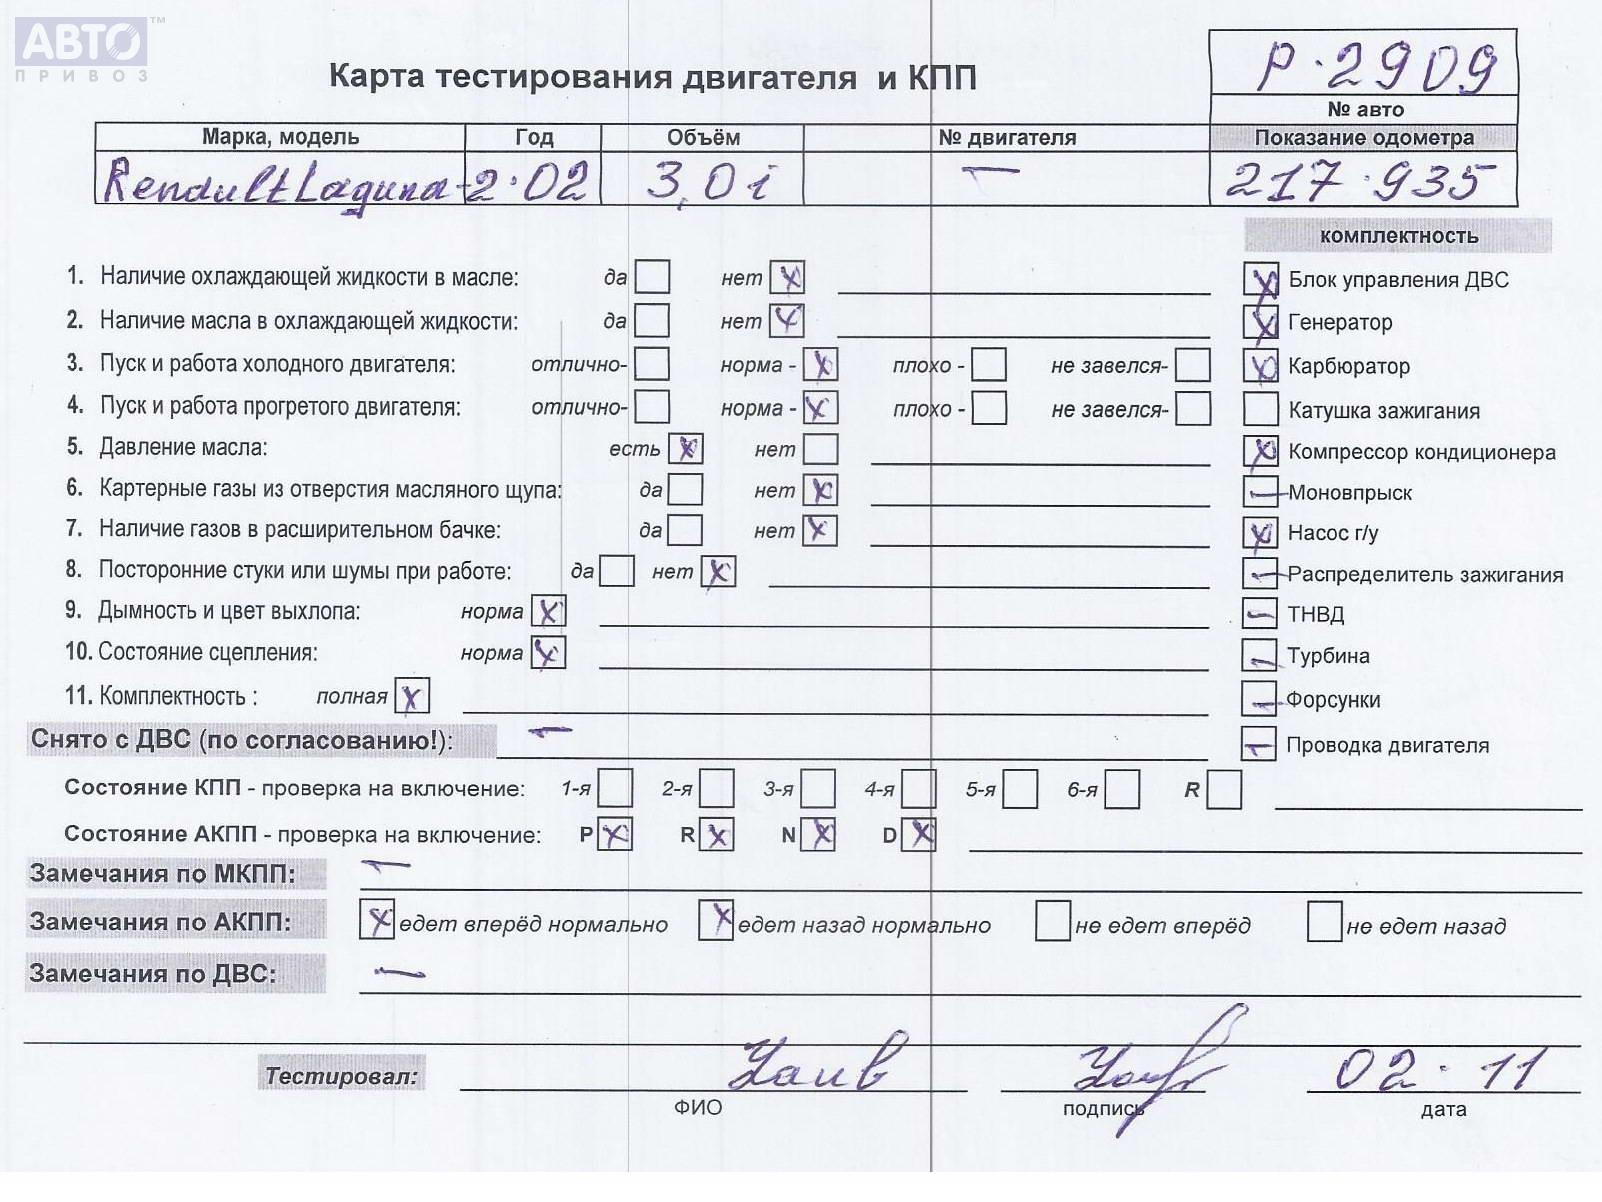 АВТО™
ПРИВОЗ
Карта тестирования двигателя и КПП
Р·2909
№ авто
Марка, модель Год Объём № двигателя Показание одометра
Renault Laguna-2·02 3,0i — 217·935
комплектность
1. Наличие охлаждающей жидкости в масле: да нет x
Блок управления ДВС x
2. Наличие масла в охлаждающей жидкости: да нет x
Генератор x
3. Пуск и работа холодного двигателя: отлично- норма - x плохо - не завелся-
Карбюратор x
4. Пуск и работа прогретого двигателя: отлично- норма - x плохо - не завелся-
Катушка зажигания
5. Давление масла: есть x нет
Компрессор кондиционера x
6. Картерные газы из отверстия масляного щупа: да нет x
Моновпрыск —
7. Наличие газов в расширительном бачке: да нет x
Насос г/у x
8. Посторонние стуки или шумы при работе: да нет x
Распределитель зажигания —
9. Дымность и цвет выхлопа: норма x
ТНВД —
10. Состояние сцепления: норма x
Турбина —
11. Комплектность : полная x
Форсунки —
Снято с ДВС (по согласованию!): —
Проводка двигателя —
Состояние КПП - проверка на включение: 1-я 2-я 3-я 4-я 5-я 6-я R
Состояние АКПП - проверка на включение: P x R x N x D x
Замечания по МКПП: —
Замечания по АКПП: x едет вперёд нормально x едет назад нормально не едет вперёд не едет назад
Замечания по ДВС: —
Тестировал: 02·11
ФИО подпись дата